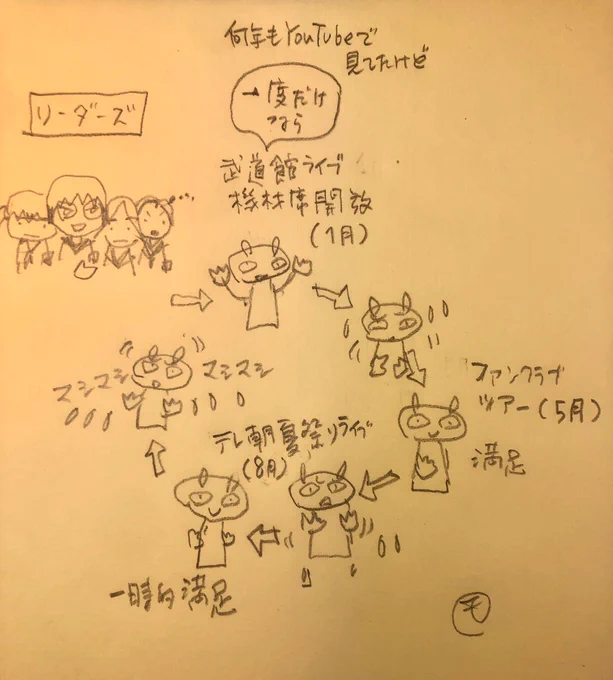 何年もYouTubeで
見てたけど
リーダーズ
一度だけ
なら
武道館ライブ
機材席開放
(1月)
ファンクラブ
ツアー(5月)
満足
テレ朝夏祭りライブ
(8月)
一時的満足
マシマシ
マシマシ